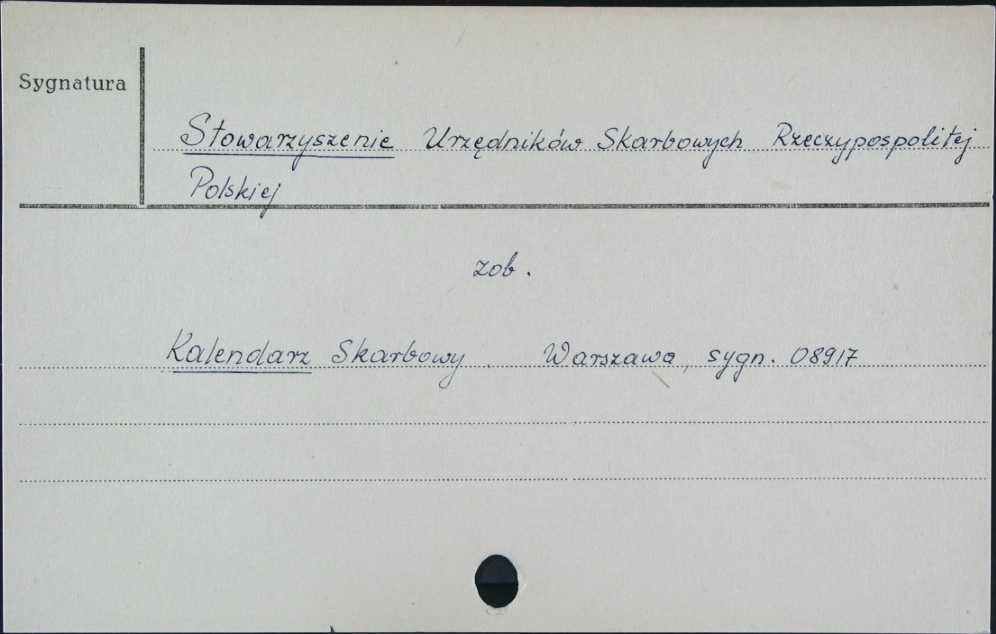 Sygnatura
Stowarzyszenie Urzędników Skarbowych Rzeczypospolitej
Polskiej
zob.
Kalendarz Skarbowy. Warszawa, sygn. 08917